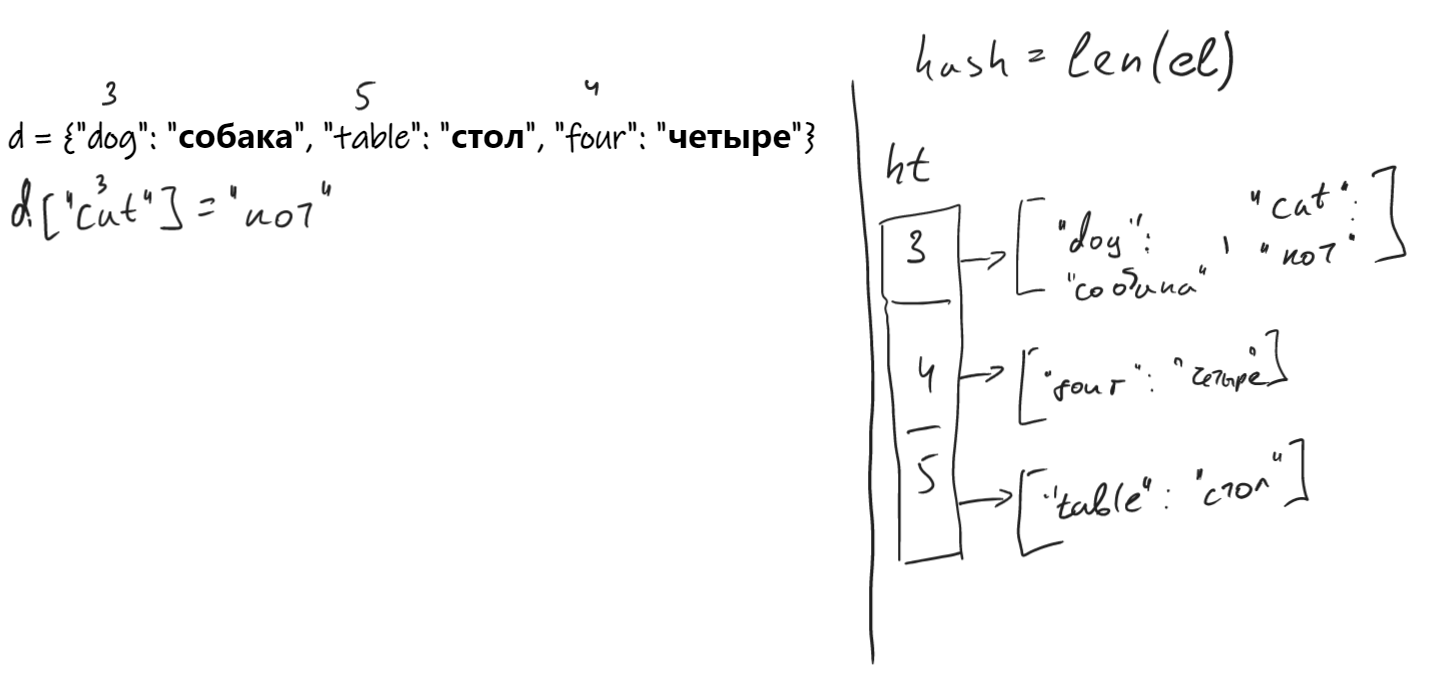 3 5 4
d = {"dog": "собака", "table": "стол", "four": "четыре"}
3
d["cat"] = "кот"
hash = len(el)
ht
3 → ["dog": "собака", "cat": "кот"]
4 → ["four": "четыре"]
5 → ["table": "стол"]